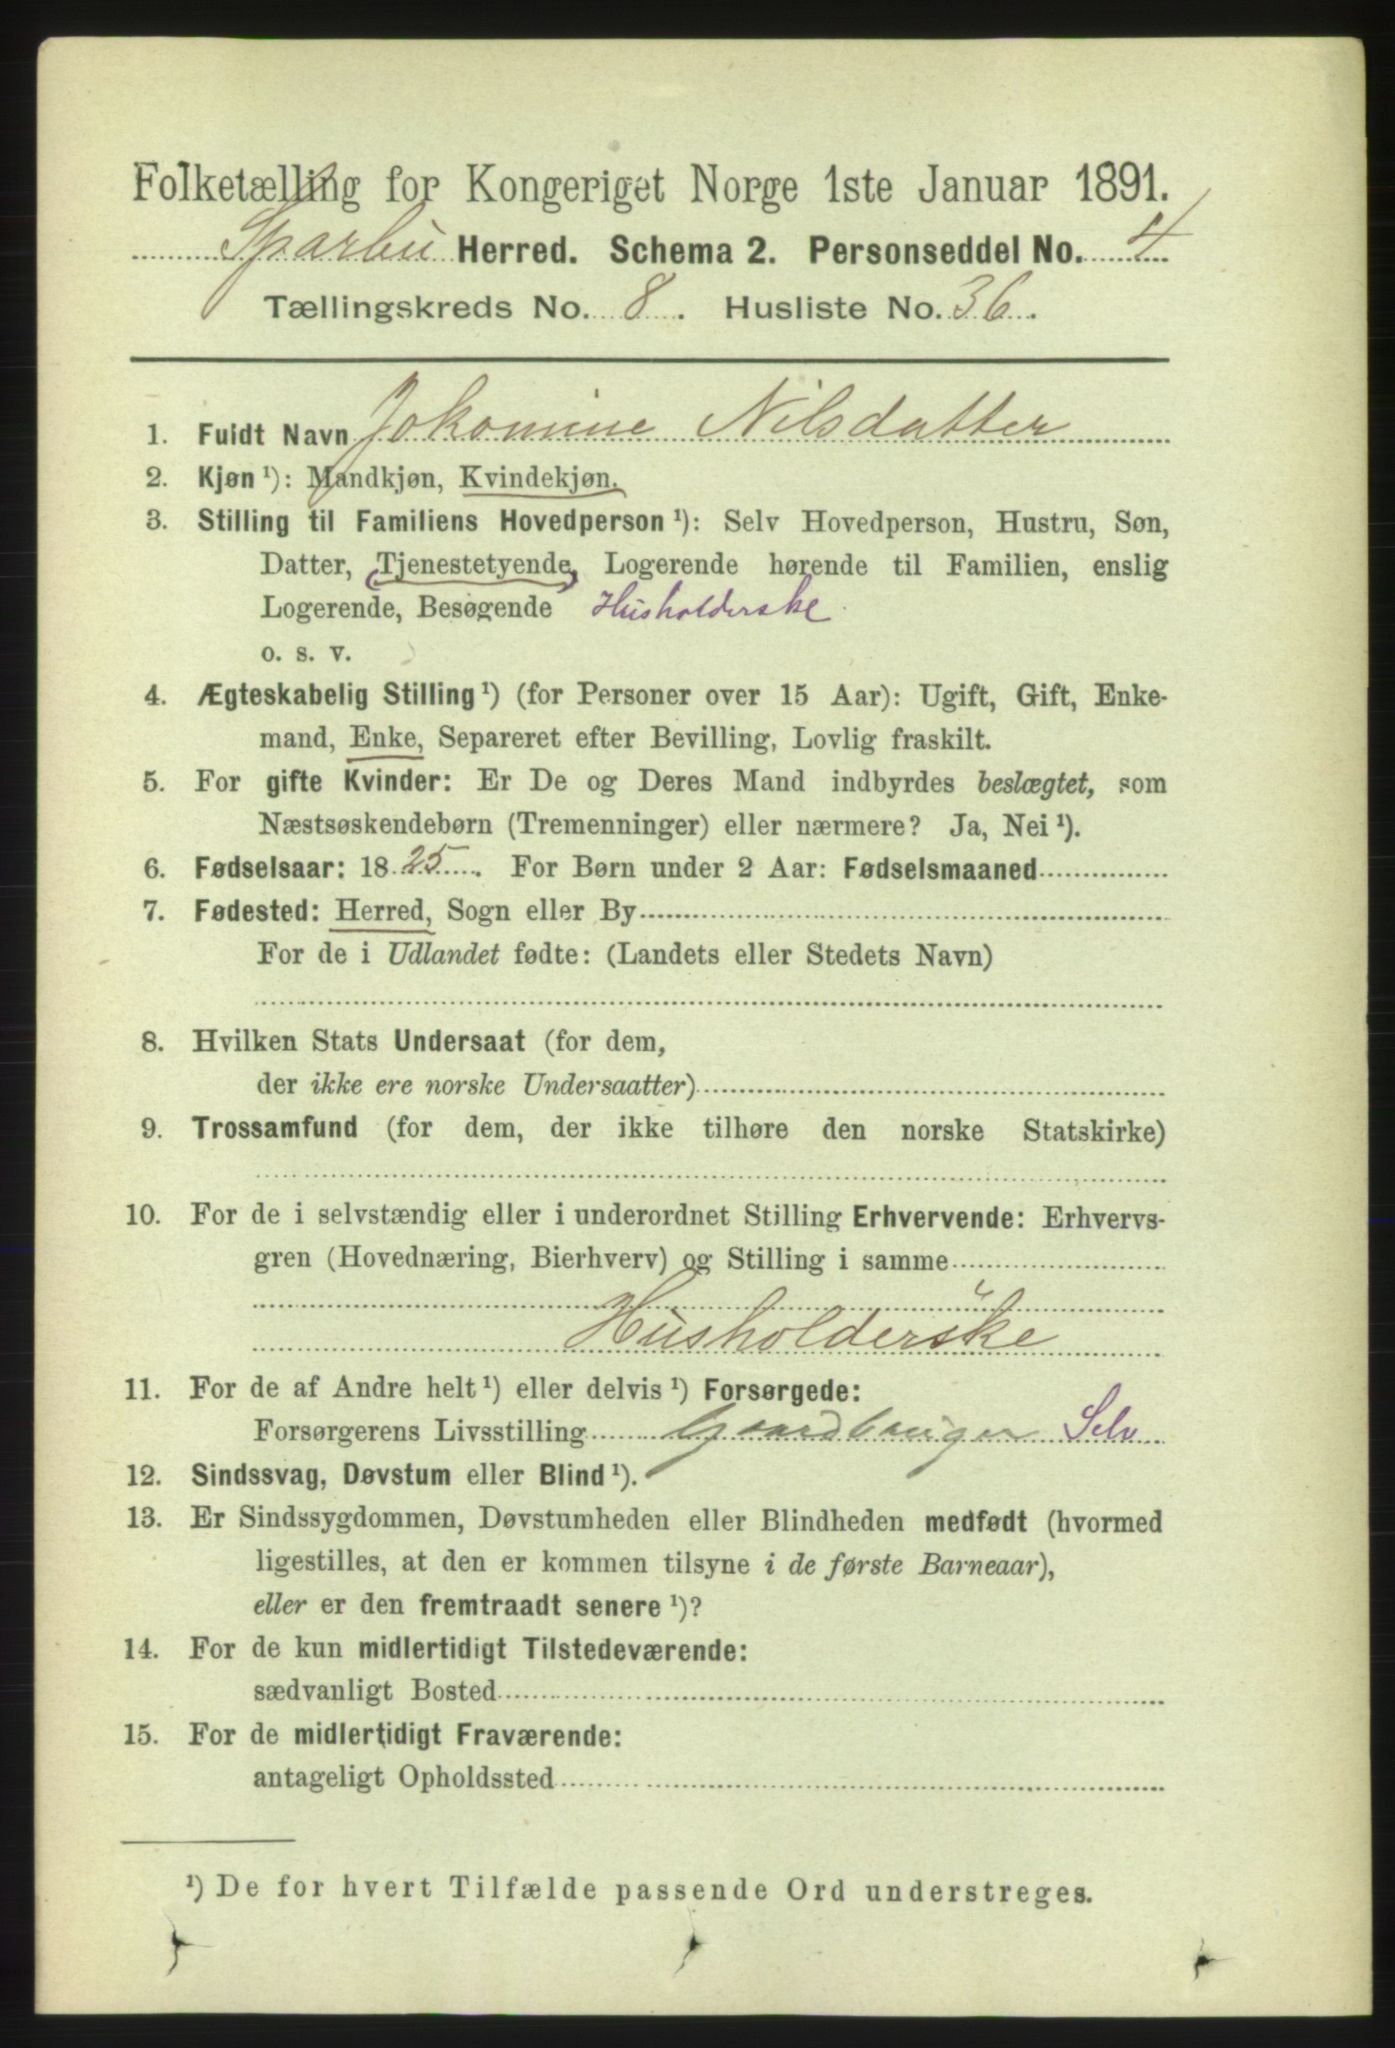 Folketælling for Kongeriget Norge 1ste Januar 1891.
Sparbu Herred. Schema 2. Personseddel No. 4
Tællingskreds No. 8. Husliste No. 36.
1. Fuldt Navn Jokomine Nilsdatter
2. Kjøn ¹): Mandkjøn, Kvindekjøn.
3. Stilling til Familiens Hovedperson ¹): Selv Hovedperson, Hustru, Søn,
Datter, (Tjenestetyende) Logerende hørende til Familien, enslig
Logerende, Besøgende Husholderske
o. s. v.
4. Ægteskabelig Stilling ¹) (for Personer over 15 Aar): Ugift, Gift, Enke-
mand, Enke, Separeret efter Bevilling, Lovlig fraskilt.
5. For gifte Kvinder: Er De og Deres Mand indbyrdes beslægtet, som
Næstsøskendebørn (Tremenninger) eller nærmere? Ja, Nei ¹).
6. Fødselsaar: 1825. For Børn under 2 Aar: Fødselsmaaned
7. Fødested: Herred, Sogn eller By
For de i Udlandet fødte: (Landets eller Stedets Navn)
8. Hvilken Stats Undersaat (for dem,
der ikke ere norske Undersaatter)
9. Trossamfund (for dem, der ikke tilhøre den norske Statskirke)
10. For de i selvstændig eller i underordnet Stilling Erhvervende: Erhvervs-
gren (Hovednæring, Bierhverv) og Stilling i samme
Husholderske
11. For de af Andre helt ¹) eller delvis ¹) Forsørgede:
Forsørgerens Livsstilling Gaardbruger Selv
12. Sindssvag, Døvstum eller Blind ¹).
13. Er Sindssygdommen, Døvstumheden eller Blindheden medfødt (hvormed
ligestilles, at den er kommen tilsyne i de første Barneaar),
eller er den fremtraadt senere ¹)?
14. For de kun midlertidigt Tilstedeværende:
sædvanligt Bosted
15. For de midlertidigt Fraværende:
antageligt Opholdssted
¹) De for hvert Tilfælde passende Ord understreges.